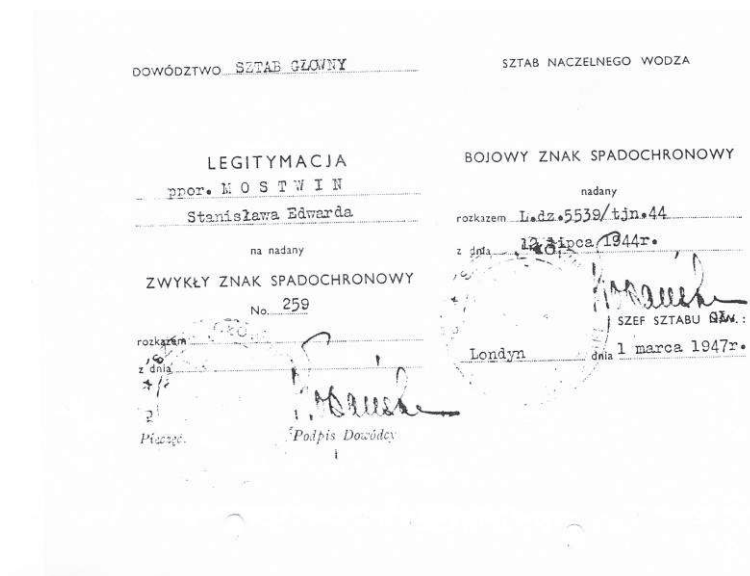 DOWÓDZTWO SZTAB GŁÓWNY
LEGITYMACJA
ppor. MOSTWIN
Stanisława Edwarda
na nadany
ZWYKŁY ZNAK SPADOCHRONOWY
No. 259
rozkazem
z dnia
Pieczęć.
Podpis Dowódcy
SZTAB NACZELNEGO WODZA
BOJOWY ZNAK SPADOCHRONOWY
nadany
rozkazem L.dz.5539/tjn.44
z dnia 12 lipca 1944r.
SZEF SZTABU
Londyn dnia 1 marca 1947r.